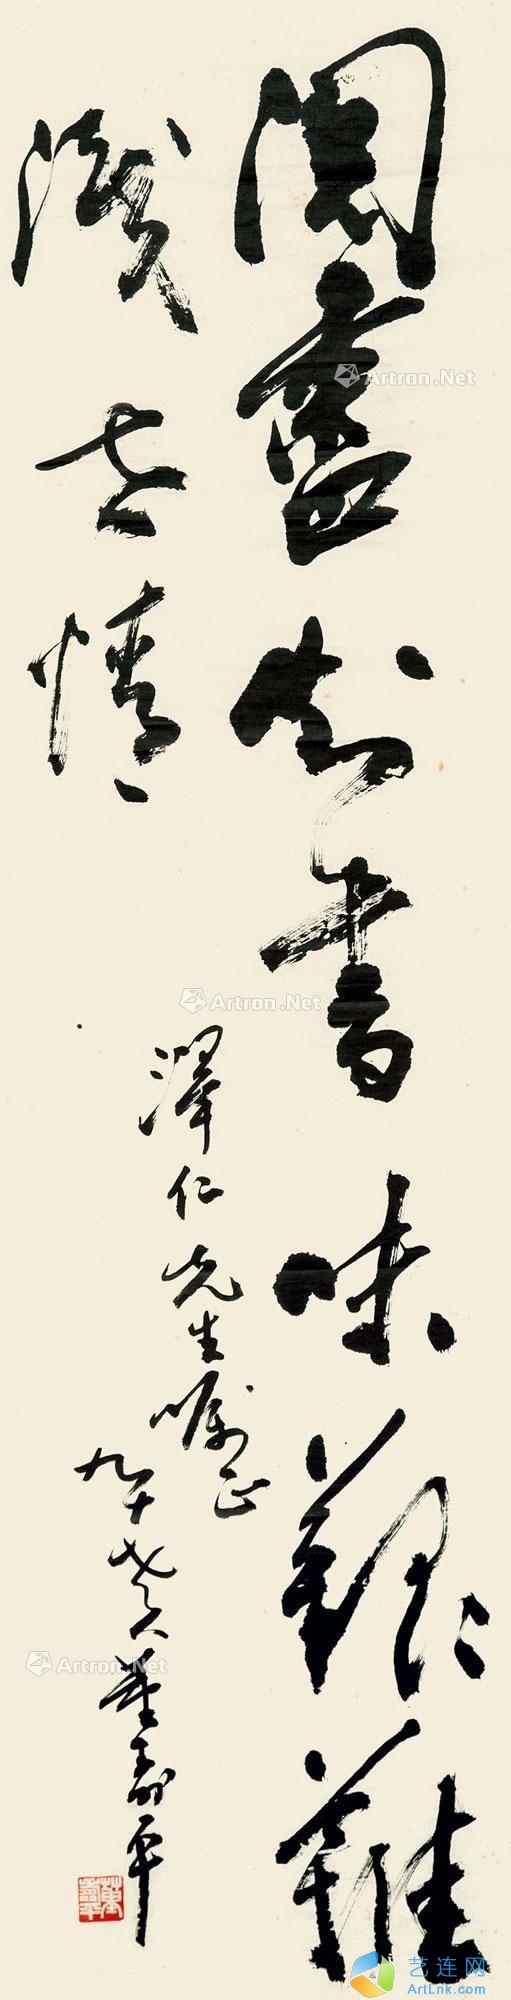 閱盡知書味艱難
識世情
澤仁先生囑正
九十老人董壽平
董壽平
Artron.Net
Artron.Net
Artron.Net
艺连网
ArtLnk.com